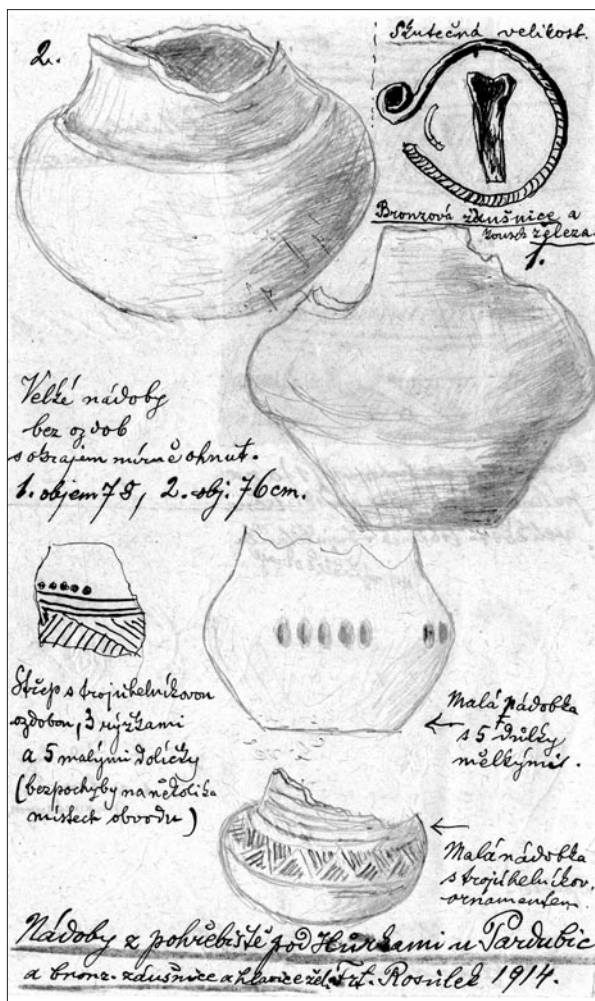 2.
Skutečná velikost.
Bronzová záušnice a
kousek železa.
1.
Velké nádoby
bez ozdob
s okrajem mírně ohnut.
1. objem 78, 2. obj. 76 cm.
Střep s trojúhelníkovou
ozdobou, 3 rýžkami
a 5 malými dolíčky
(bezpochyby na několika
místech obvodu)
Malá nádobka
s 5 důlky
mělkými.
Malá nádobka
s trojúhelníkov.
ornamentem.
Nádoby z pohřebiště pod Hůrkami u Pardubic
a bronz. záušnice a hlavice žel. Frt. Rosůlek 1914.